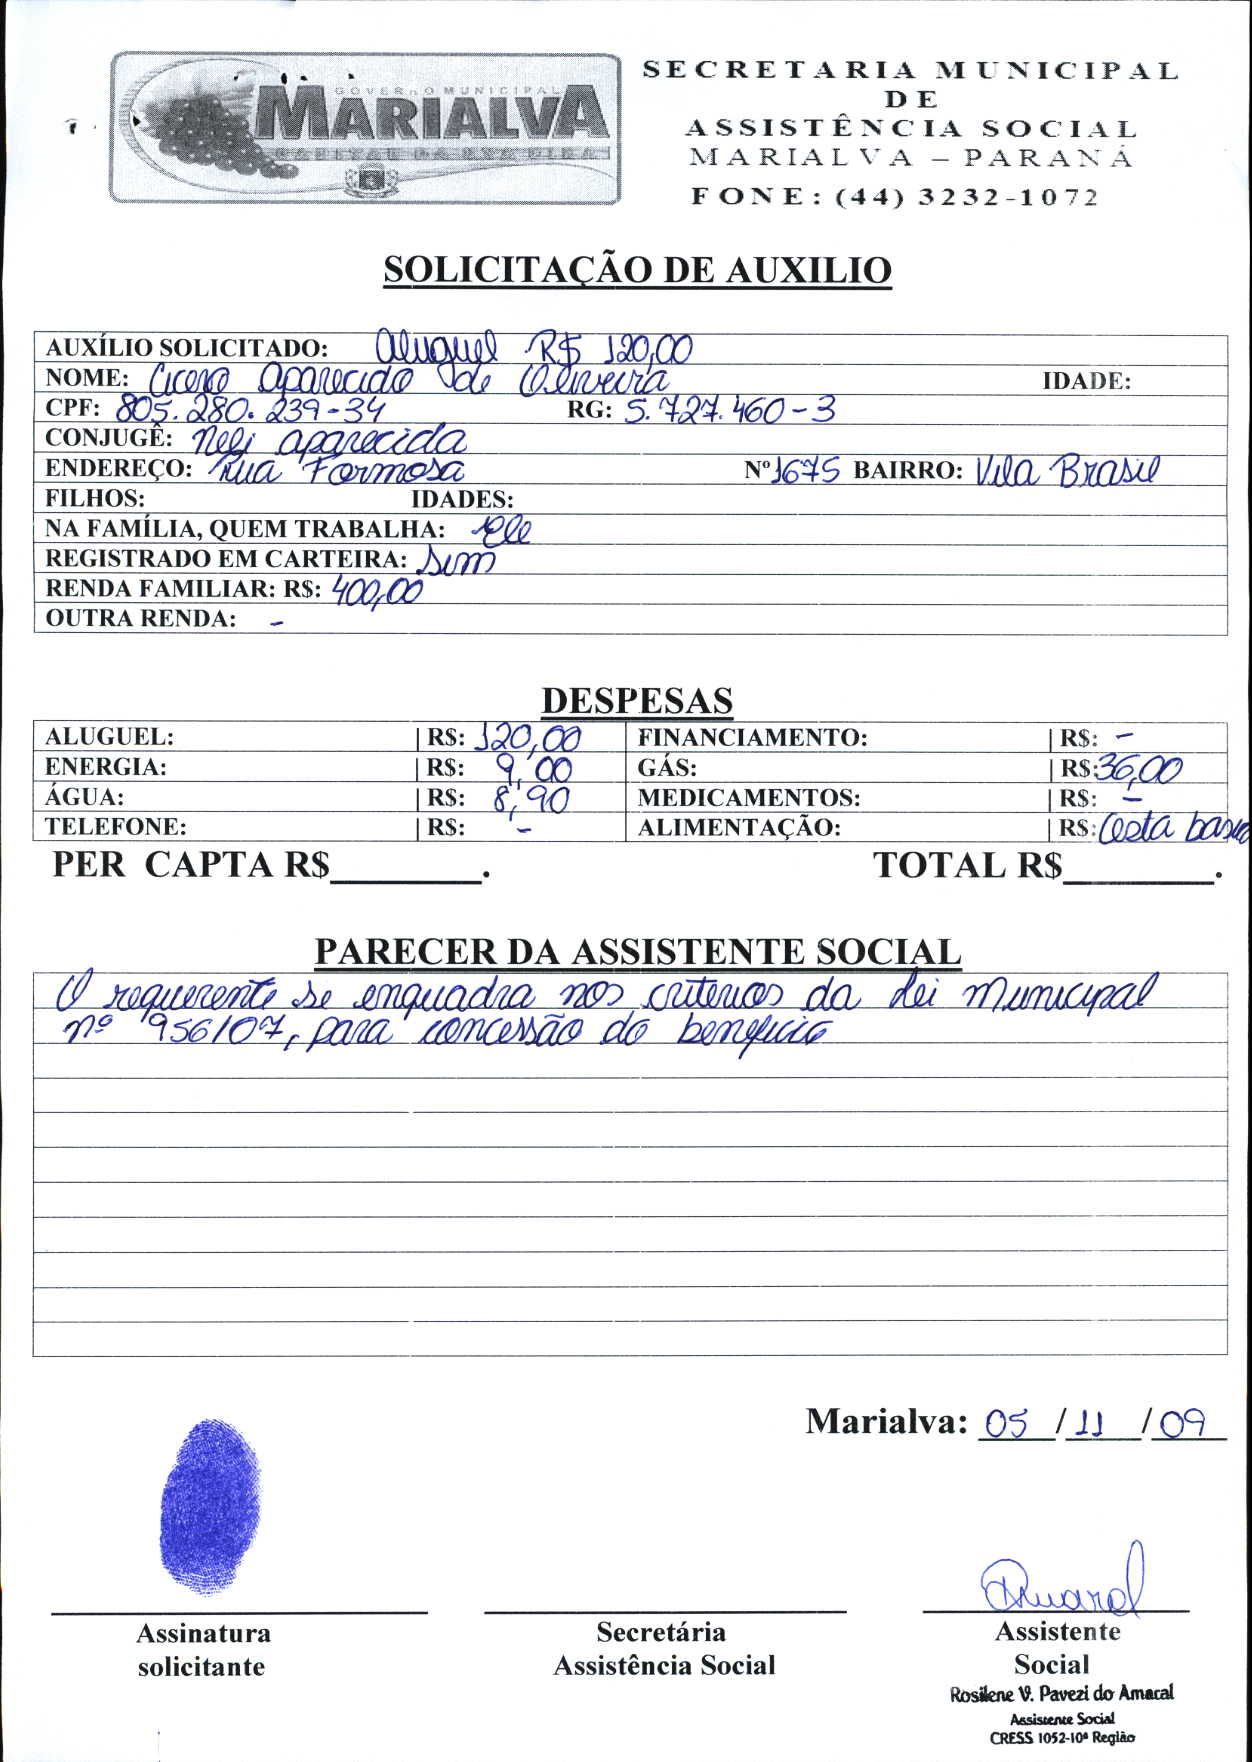 GOVERNO MUNICIPAL
MARIALVA
CAPITAL DA UVA FINA
SECRETARIA MUNICIPAL
DE
ASSISTÊNCIA SOCIAL
MARIALVA – PARANÁ
FONE: (44) 3232-1072
SOLICITAÇÃO DE AUXILIO
AUXÍLIO SOLICITADO: Aluguel R$ 120,00
NOME: Cicero Aparecido de Oliveira IDADE:
CPF: 805.280.239-34 RG: 5.727.460-3
CONJUGÊ: Neli aparecida
ENDEREÇO: Rua Formosa Nº 1675 BAIRRO: Vila Brasil
FILHOS: IDADES:
NA FAMÍLIA, QUEM TRABALHA: Ele
REGISTRADO EM CARTEIRA: Sim
RENDA FAMILIAR: R$: 400,00
OUTRA RENDA: -
DESPESAS
ALUGUEL: | R$: 120,00 FINANCIAMENTO: | R$: -
ENERGIA: | R$: 9,00 GÁS: | R$: 36,00
ÁGUA: | R$: 8,90 MEDICAMENTOS: | R$: -
TELEFONE: | R$: - ALIMENTAÇÃO: | R$: Cesta basica
PER CAPTA R$________. TOTAL R$________.
PARECER DA ASSISTENTE SOCIAL
O requerente se enquadra nos criterios da Lei Municipal
nº 956/07, para concessão do beneficio
Marialva: 05 / 11 / 09
Amaral
Assinatura Secretária Assistente
solicitante Assistência Social Social
Rosilene V. Pavezi do Amaral
Assistente Social
CRESS 1052-10ª Região